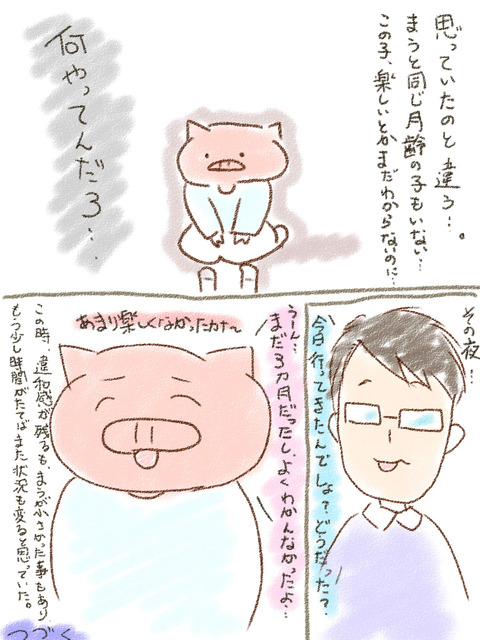 思っていたのと違う…。
まうと同じ月齢の子もいない…
この子、楽しいとかまだわからないのに…
何やってんだろ…
その夜…
今日行ってきたんでしょ？どうだった？
うーん…
まだ3カ月だったし、よくわかんなかったよ…
あまり楽しくなかったかな〜
この時、違和感が残るも、まうが小さかった事もあり
もう少し時間がたてばまた状況も変ると思っていた。
つづく